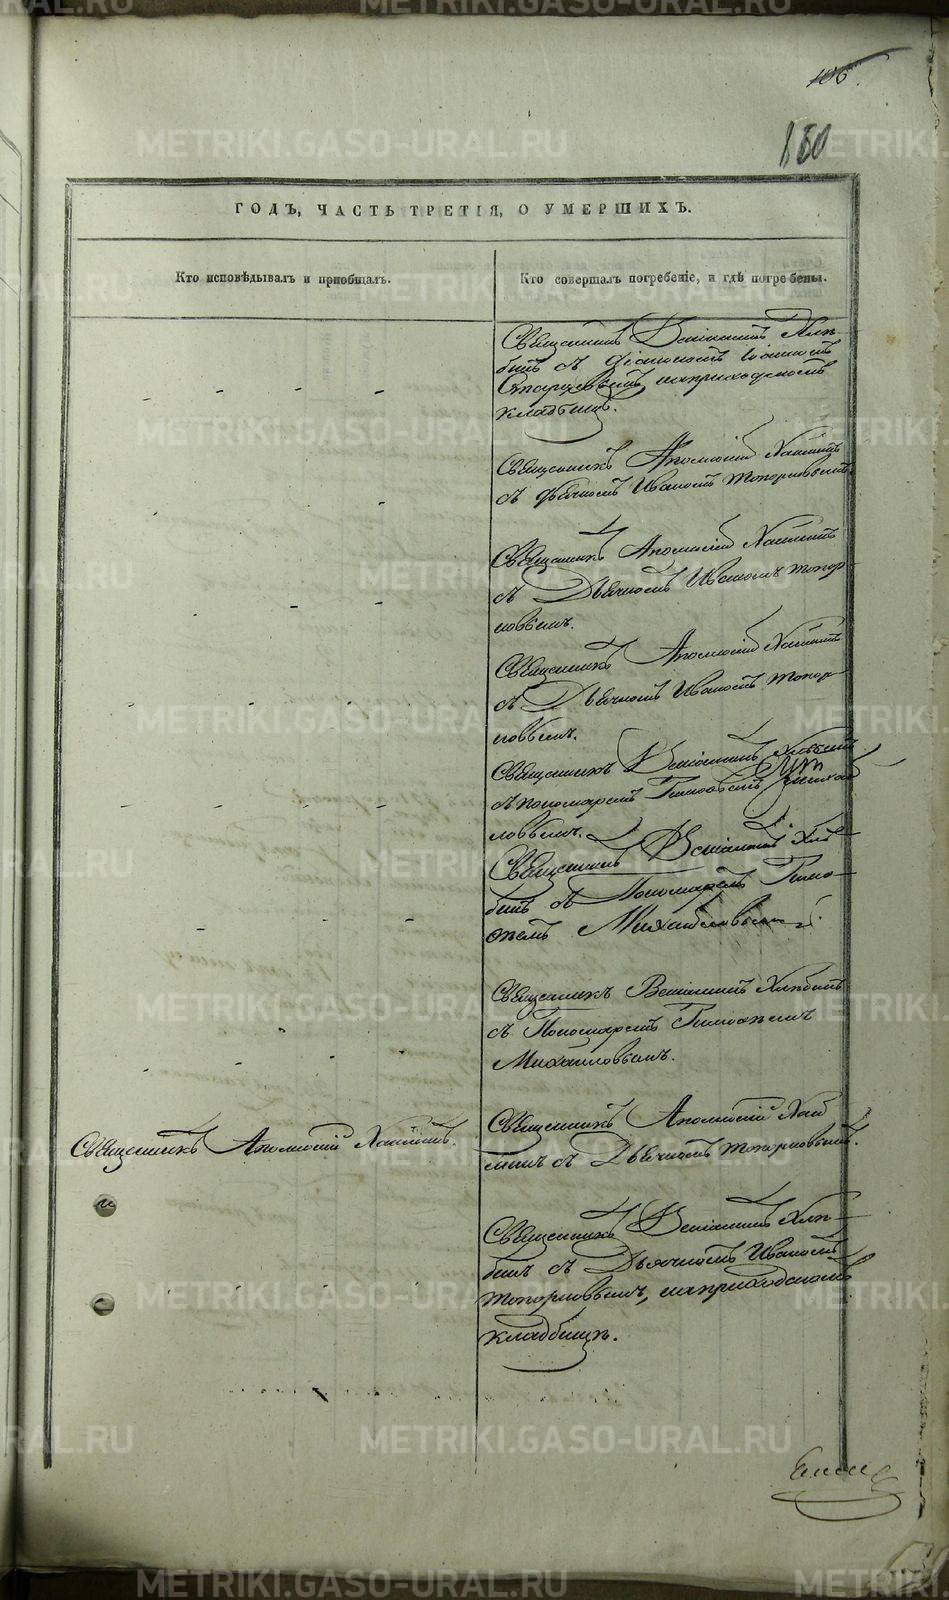 106.
180
ГОДЪ, ЧАСТЬ ТРЕТІЯ, О УМЕРШИХЪ.
Кто исповѣдывалъ и пріобщалъ.
Кто совершалъ погребеніе, и гдѣ погребены.
Священникъ Веніаминъ Хлѣ-
бинъ съ діакономъ Іоанномъ
на приходскомъ
кладбищѣ.
Священникъ Аполлосій
съ дьячкомъ Иваномъ Топорковымъ.
Священникъ Аполлосій
съ Дьячкомъ Иваномъ Топор-
ковымъ.
Священникъ Аполлосій
съ Дьячкомъ Иваномъ Топор-
ковымъ.
Священникъ Веніаминъ Хлѣбинъ
съ пономаремъ Михай-
ловымъ.
Священникъ Веніаминъ Хлѣ-
бинъ съ Пономаремъ Тимо-
ѳеемъ Михайловымъ.
Священникъ Веніаминъ Хлѣбинъ
съ Пономаремъ Тимоѳеемъ
Михайловымъ.
Священникъ Аполлосій
Священникъ Аполлосій
съ Дьячкомъ Топорковымъ.
Священникъ Веніаминъ Хлѣ-
бинъ съ Дьячкомъ Иваномъ
Топорковымъ, на приходскомъ
кладбищѣ.
METRIKI.GASO-URAL.RU